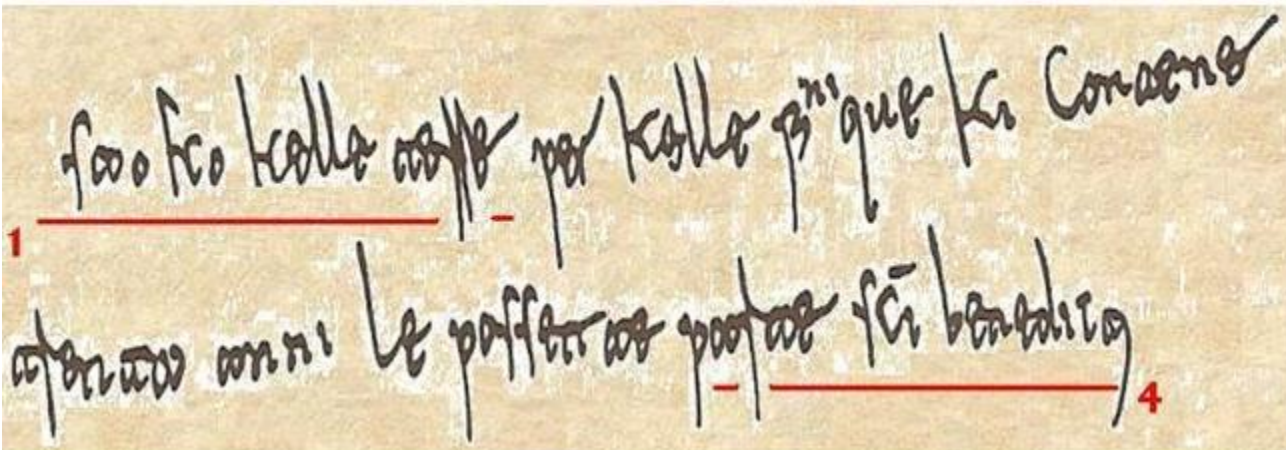 sao ko kelle terre per kelle fini que ki Contene
1
trenta anni le possette parte sci benedicti
4